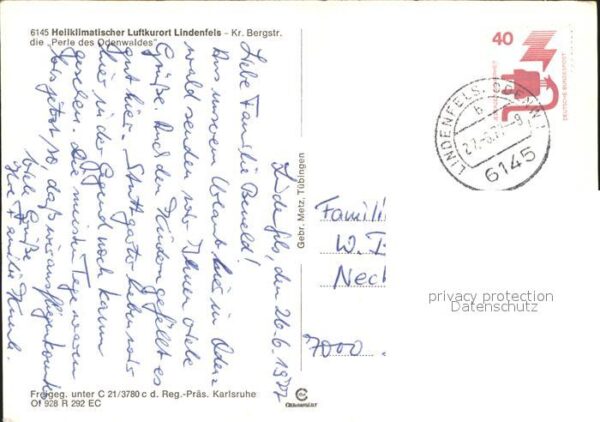 6145 Heilklimatischer Luftkurort Lindenfels – Kr. Bergstr.
die „Perle des Odenwaldes"
Lindenfels, den 26.6.1977
Liebe Familie
Aus unserem Urlaub hier in Oden-
wald senden wir Ihnen viele
Grüße. Auch den Kindern gefällt es
gut hier. Stuttgarter haben wir
hier in der Gegend noch kaum
gesehen. Die meisten Tage waren
bis jetzt so, daß wir ausfliegen konnten
Viele Grüße
Ihre Familie
Gebr. Metz, Tübingen
Freigeg. unter C 21/3780 c d. Reg.-Präs. Karlsruhe
Of 928 R 292 EC
40
DEUTSCHE BUNDESPOST
LINDENFELS, ODENW
b
6145
Famili
W.
Nec
7000
privacy protection
Datenschutz